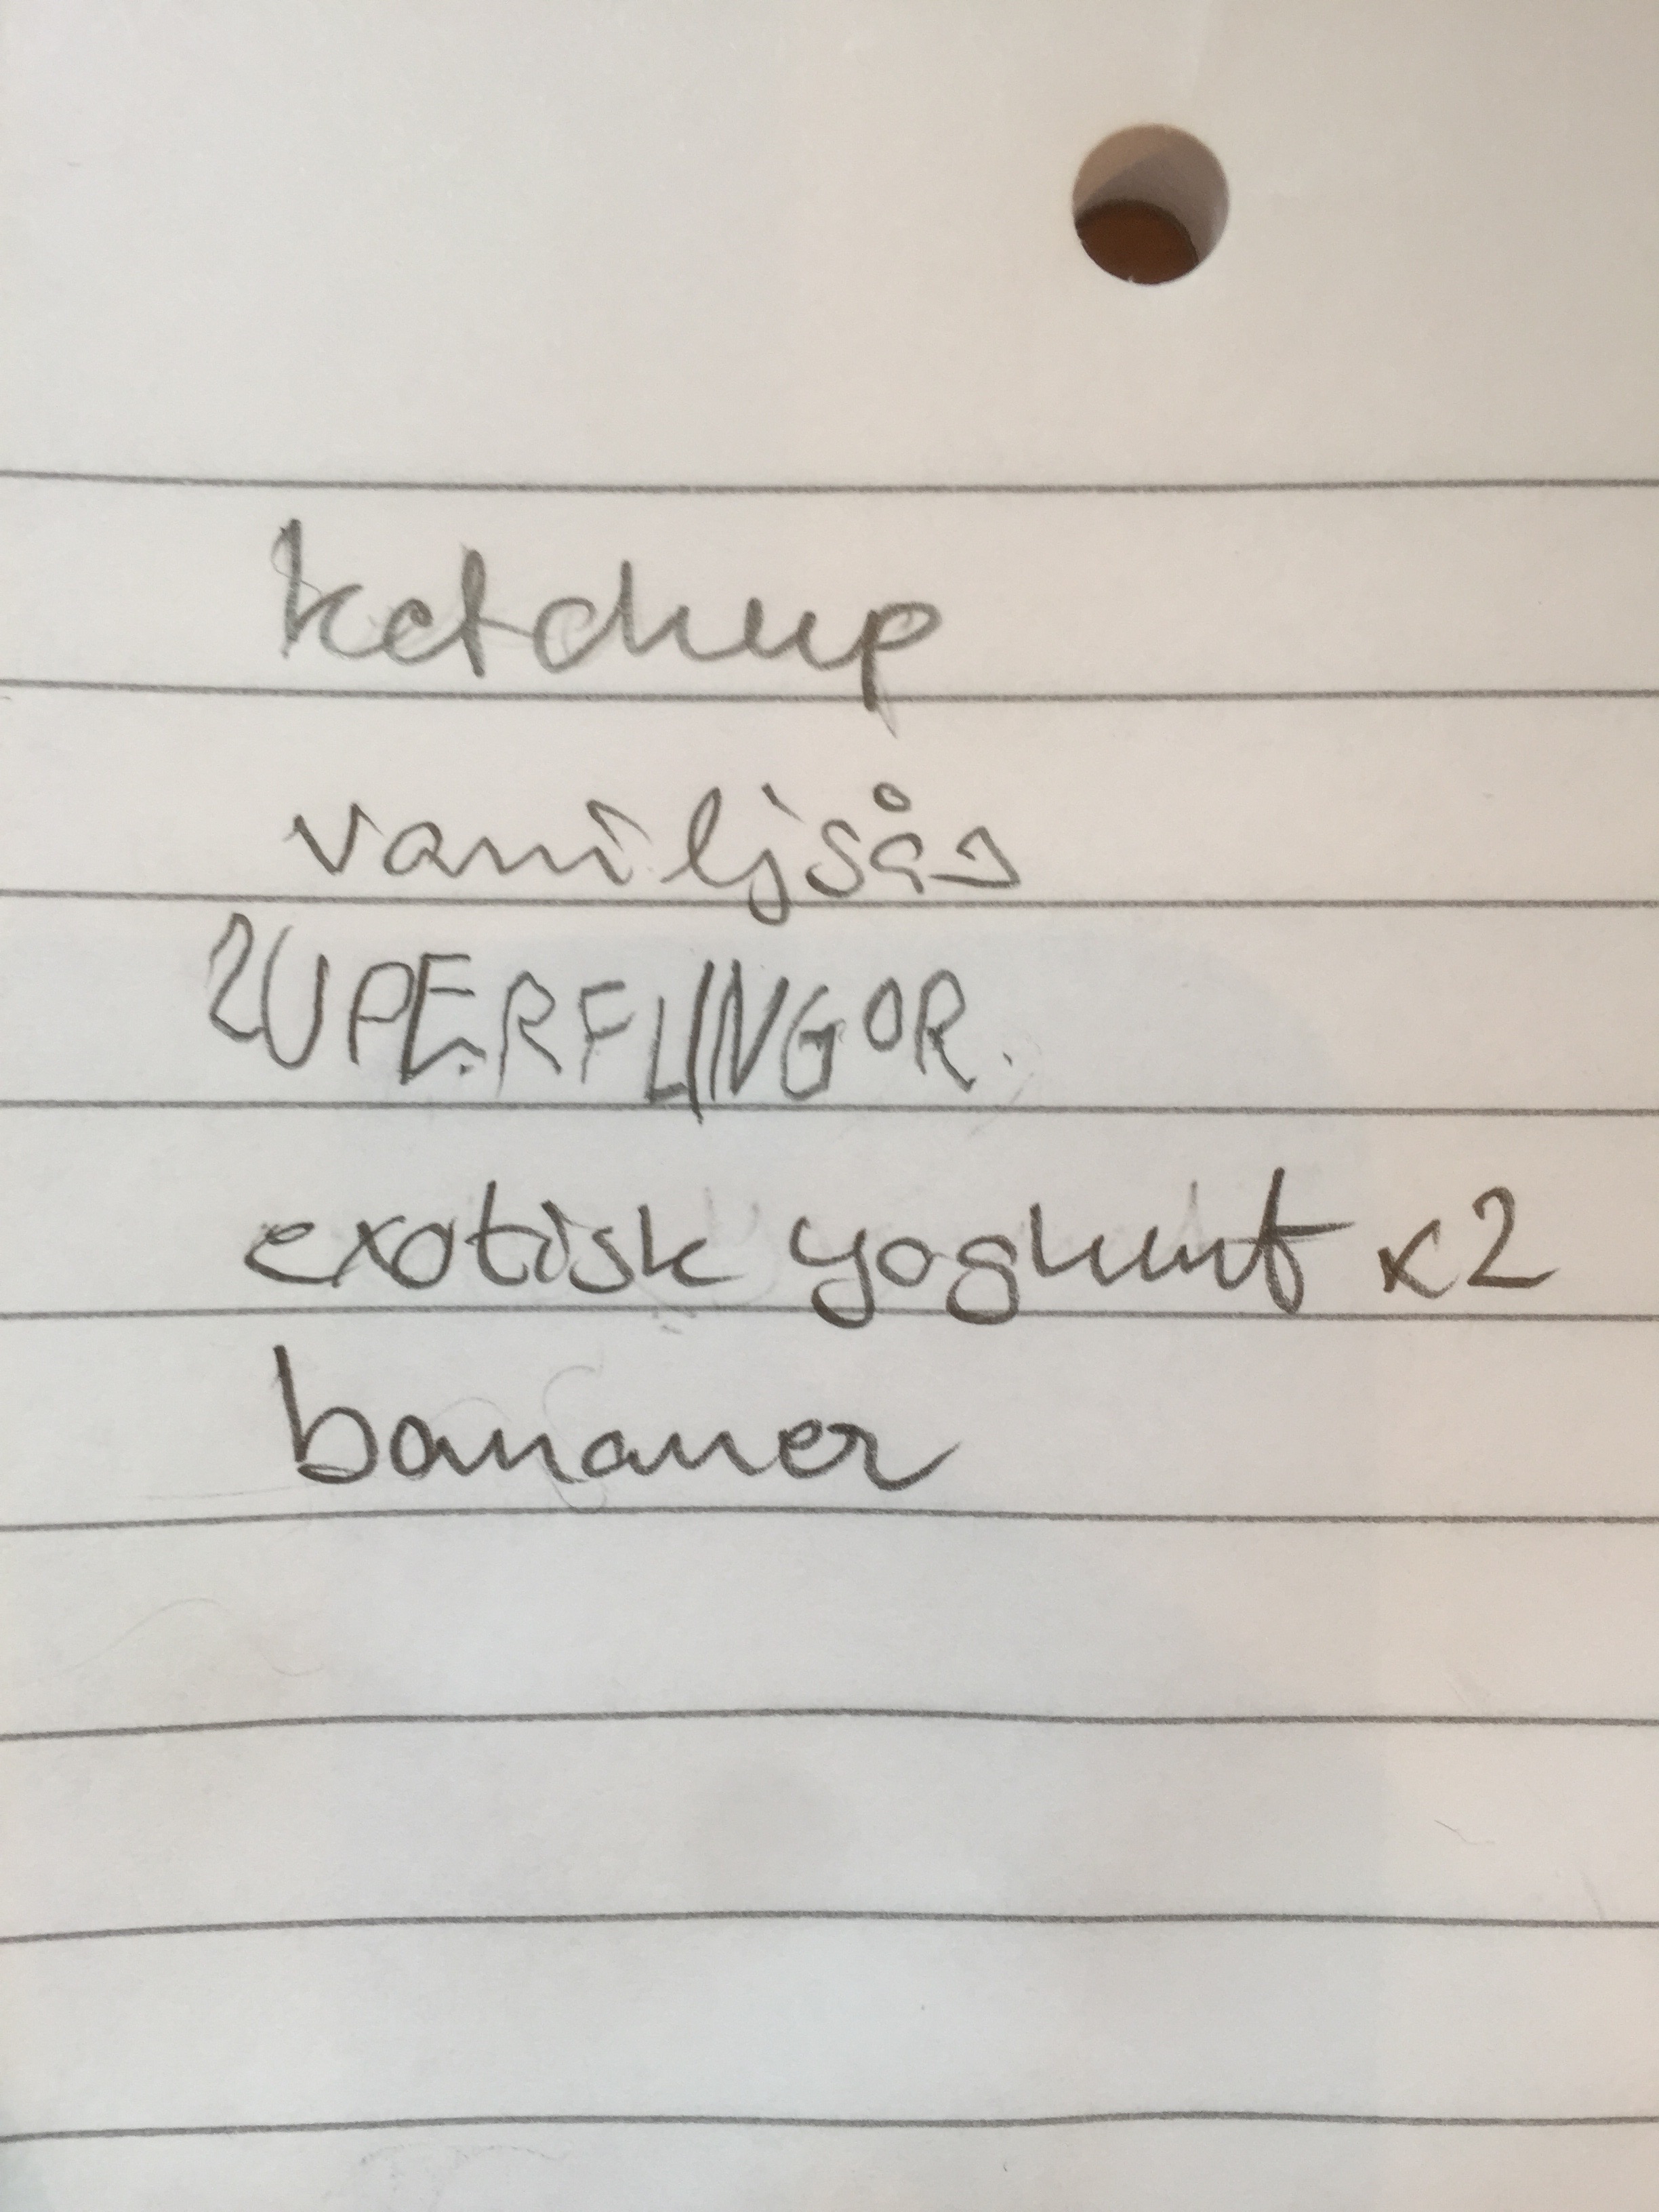 ketchup
vaniljsås
ZUPERFLINGOR.
exotisk yoghurt x2
bananer